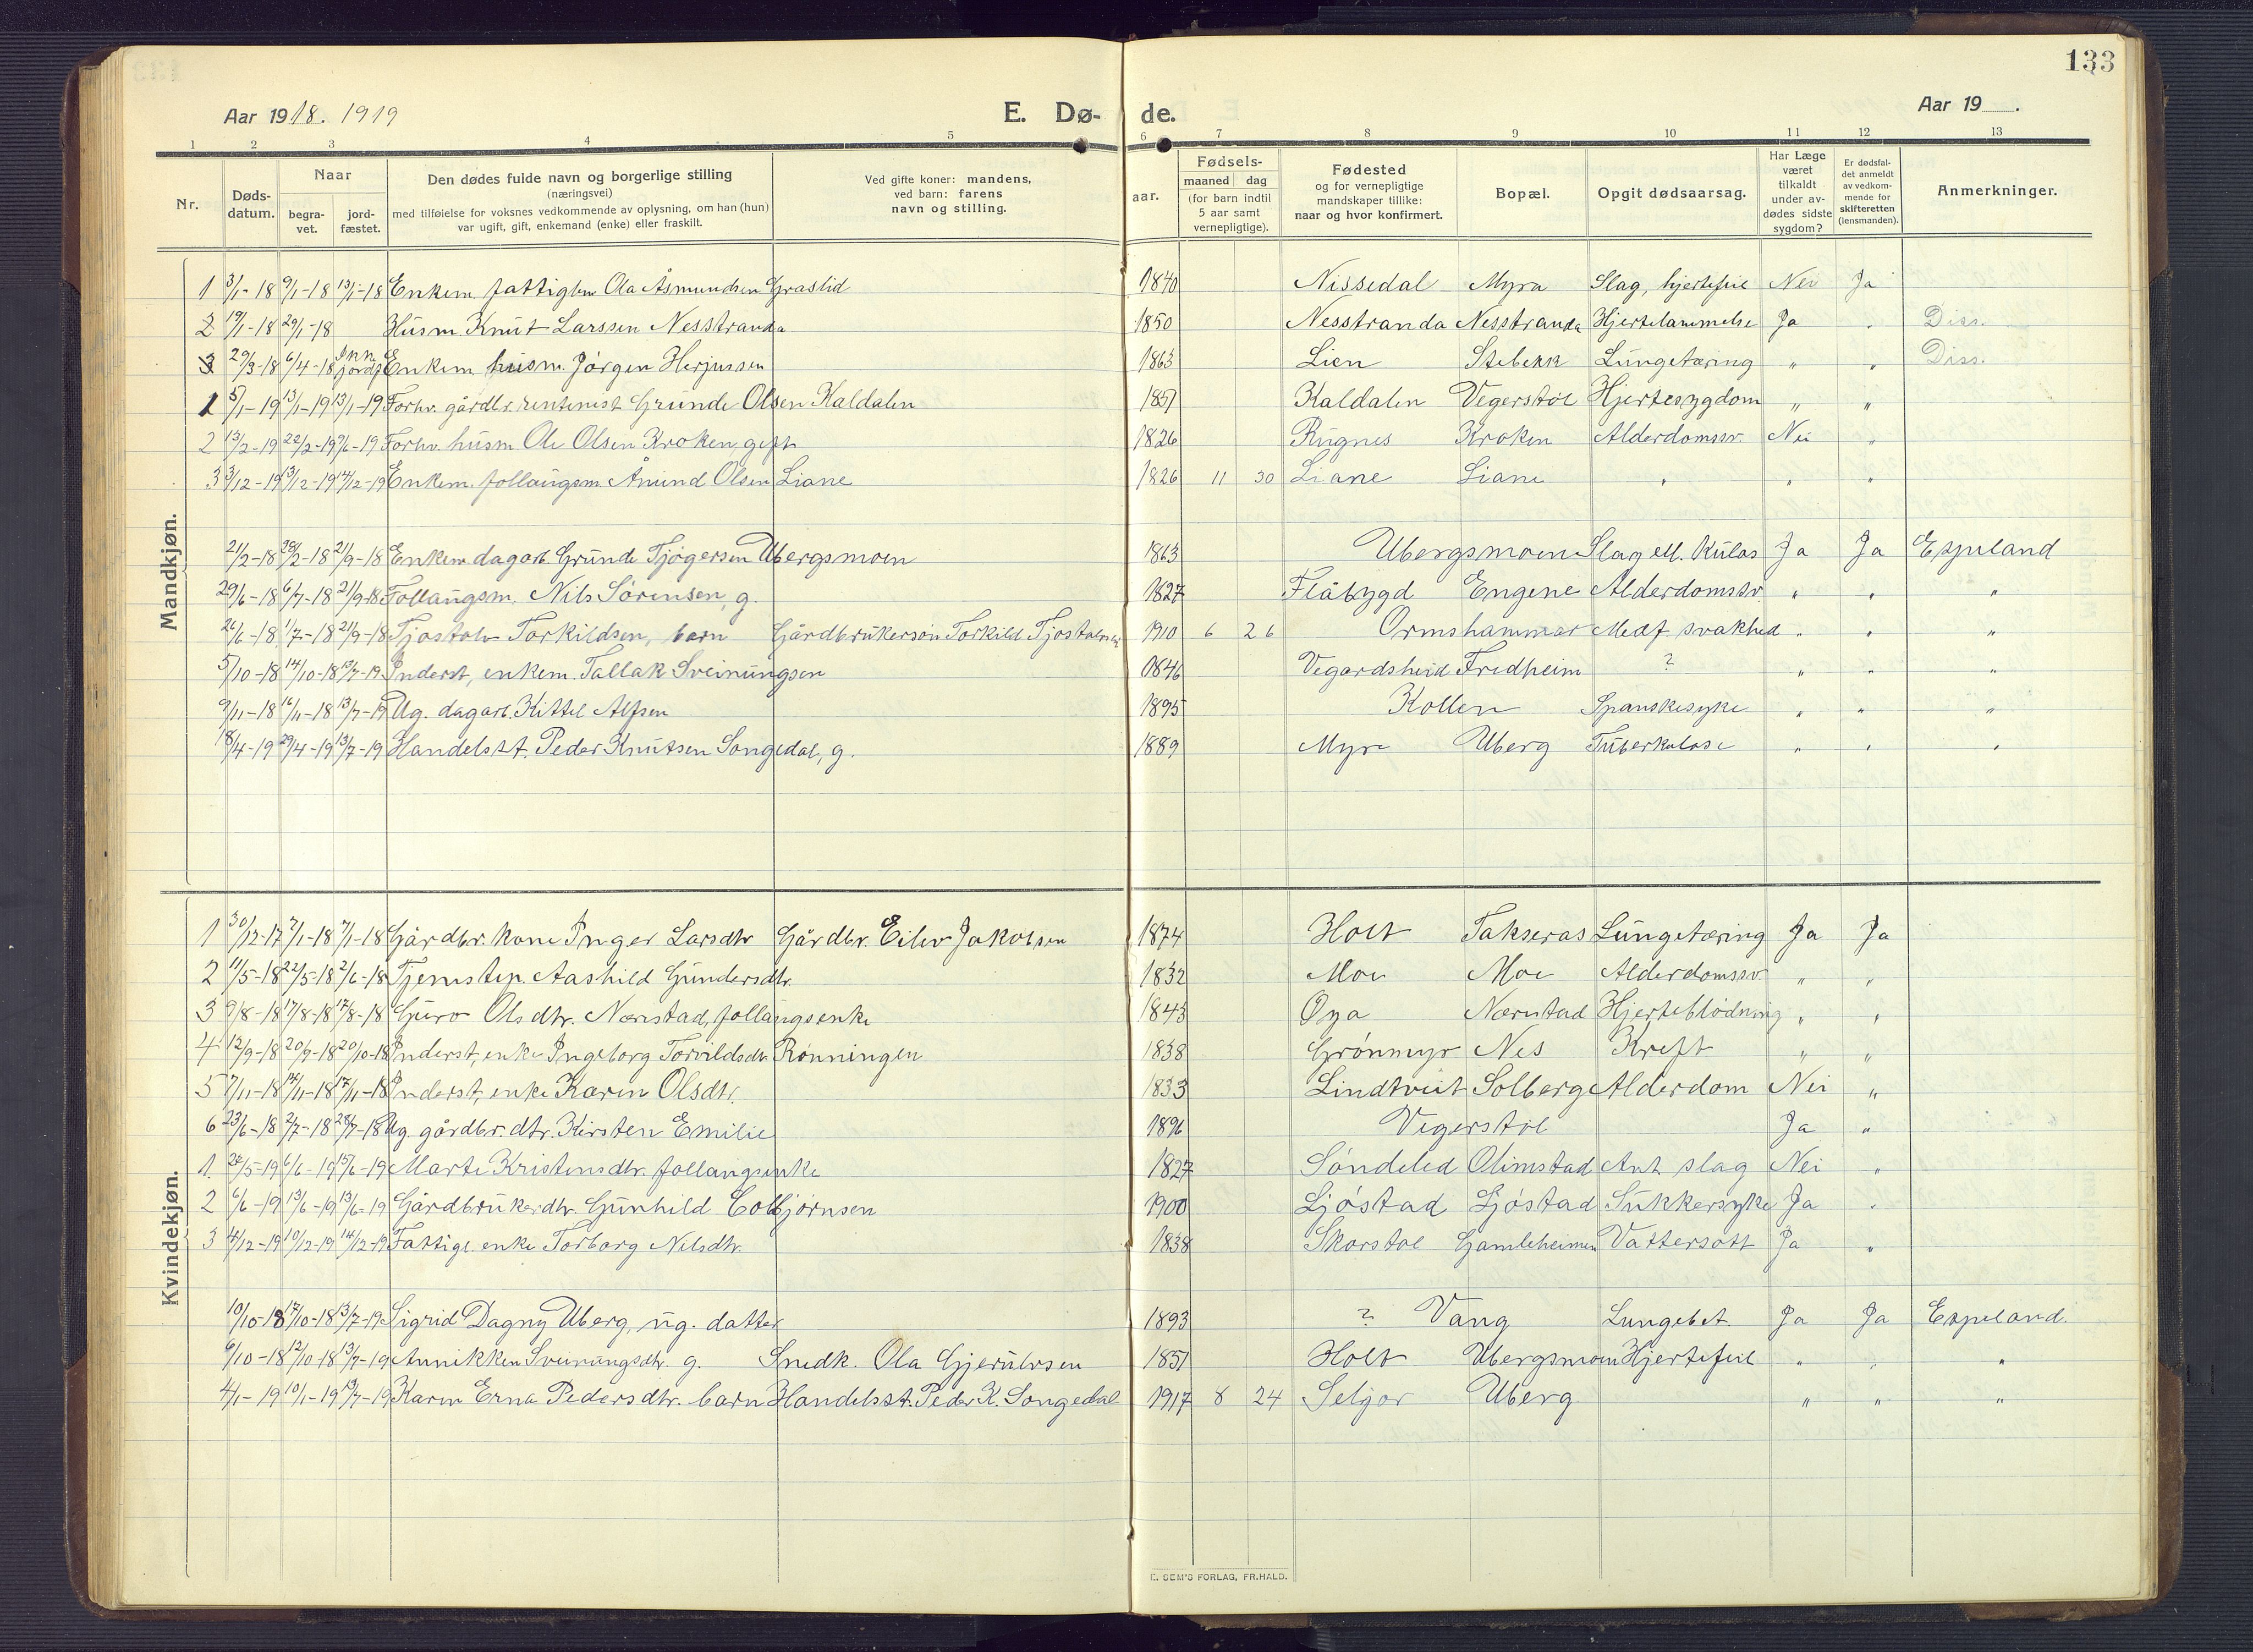 133
Aar 1918. 1919 E. Dø- de. Aar 19 .
1 2 3 4 5 6 7 8 9 10 11 12 13
Nr.
Døds-
datum.
Naar
begra-
vet.
jord-
fæstet.
Den dødes fulde navn og borgerlige stilling
(næringsvei)
med tilføielse for voksnes vedkommende av oplysning, om han (hun)
var ugift, gift, enkemand (enke) eller fraskilt.
Ved gifte koner: mandens,
ved barn: farens
navn og stilling.
aar.
Fødsels-
maaned dag
(for barn indtil
5 aar samt
vernepligtige).
Fødested
og for vernepligtige
mandskaper tillike:
naar og hvor konfirmert.
Bopæl.
Opgit dødsaarsag.
Har Læge
været
tilkaldt
under av-
dødes sidste
sygdom?
Er dødsfal-
det anmeldt
av vedkom-
mende for
skifteretten
(lensmanden).
Anmerkninger.
Mandkjøn.
1 3/1-18 9/1-18 13/1-18 Enkem. fattiglem Ola Åsmundsen Graslid 1840 Nissedal Myra Slag, hjertefeil Nei Ja
2 19/1-18 29/1-18 Husm. Knut Larssen Nesstranda 1850 Nesstranda Nesstranda Hjertelammelse Ja " Diss.
3 29/3-18 6/4-18 Enkem. husm. Jørgen Herjussen 1863 Lien Stebekk Lungetæring " " Diss.
1 5/1-19 13/1-19 13/1-19 Forhv. gårdbr. rentenist Grunde Olsen Kaldalen 1851 Kaldalen Vegerstøl Hjertesygdom " "
2 13/2-19 22/2-19 9/6-19 Forhv. husm. Ole Olsen Kroken, gift 1826 Rugnes Kroken Alderdomssv. Nei "
3 3/12-19 13/12-19 14/12-19 Enkem. føllaugsm. Åmund Olsen Liane 1826 11 30 Liane Liane " " "
21/2-18 28/2-18 21/9-18 Enkem. dagarb. Grunde Tjøgersen Ubergsmoen 1863 Ubergsmoen Slag ell. Kulos Ja Ja Espeland
29/6-18 6/7-18 21/9-18 Føllaugsm. Nils Sørensen, g. 1827 Flåbygd Engene Alderdomssv. " " "
26/6-18 1/7-18 21/9-18 Tjostolv Torkildsen, barn Gårdbrukersøn Torkild Tjostolvsen 1910 6 26 Ormshammar Medf. svakhed " " "
5/10-18 14/10-18 13/7-19 Inderst, enkem. Tallak Sveinungsen 1846 Vegardsheid Fredheim ? " " "
9/11-18 16/11-18 13/7-19 Ug. dagarb. Kittel Alfsen 1895 Kollen Spanskesyke " " "
18/4-19 29/4-19 13/7-19 Handelsst. Peder Knutsen Songedal, g. 1889 Myre Uberg Tuberkulose " " "
Kvindekjøn.
1 30/12-17 7/1-18 7/1-18 Gårdbr. kone Inger Larsdtr Gårdbr. Eilev Jakobsen 1874 Holt Takseras Lungetæring Ja Ja
2 11/5-18 22/5-18 2/6-18 Tjenstep. Aashild Gundersdtr. 1832 Moe Moe Alderdomssv. " "
3 9/8-18 17/8-18 17/8-18 Guro Olsdtr. Nærstad, føllaugsenke 1843 Øya Nærstad Hjerteblødning " "
4 12/9-18 20/9-18 20/10-18 Inderst, enke Ingeborg Torvildsdtr. Rønningen 1838 Grønmyr Nes Kreft " "
5 7/11-18 14/11-18 17/11-18 Inderst, enke Karen Olsdtr. 1833 Lindtveit Solberg Alderdom Nei "
6 23/6-18 2/7-18 28/7-18 Ug. gårdbr. dtr. Kirsten Emilie 1896 Vegerstøl Ja "
1. 28/5-19 6/6-19 15/6-19 Marte Kristensdtr. føllaugsenke 1827 Søndeled Olimstad Ant. slag Nei "
2 6/6-19 13/6-19 13/6-19 Gårdbrukerdtr. Gunhild Colbjørnsen 1900 Ljøstad Ljøstad Sukkersyke Ja "
3 4/12-19 10/12-19 14/12-19 Fattigl. enke Torborg Nilsdtr. 1838 Skorstøl Gamleheimen Vattersott Ja "
10/10-18 17/10-18 13/7-19 Sigrid Dagny Uberg, ug. datter 1893 ? Vang Lungebet. Ja Ja Espeland.
6/10-18 12/10-18 13/7-19 Annikken Sveinungsdtr. g. Snedk. Ola Gjerulvsen 1851 Holt Ubergsmoen Hjertefeil " " "
4/1-19 10/1-19 13/7-19 Karen Erna Pedersdtr. barn Handelsst. Peder K. Songedal 1917 8 24 Seljor Uberg " " "
E. SEM'S FORLAG, FR.HALD.